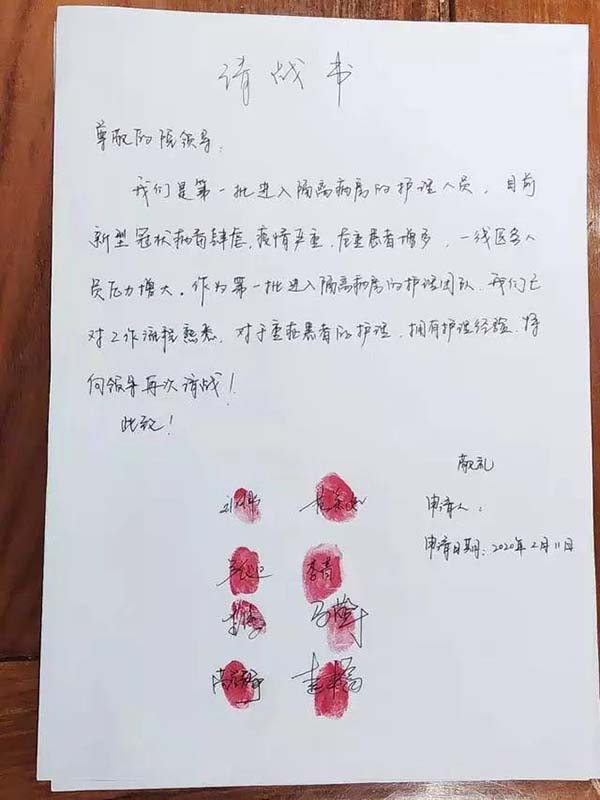 请战书
尊敬的院领导:
我们是第一批进入隔离病房的护理人员,目前
新型冠状病毒肆虐,疫情严重,危重患者增多,一线医务人
员压力增大。作为第一批进入隔离病房的护理团队,我们已
对工作流程熟悉,对于重症患者的护理,拥有护理经验,特
向领导再次请战!
此致!
敬礼
申请人:
申请日期:2020年2月11日
李青